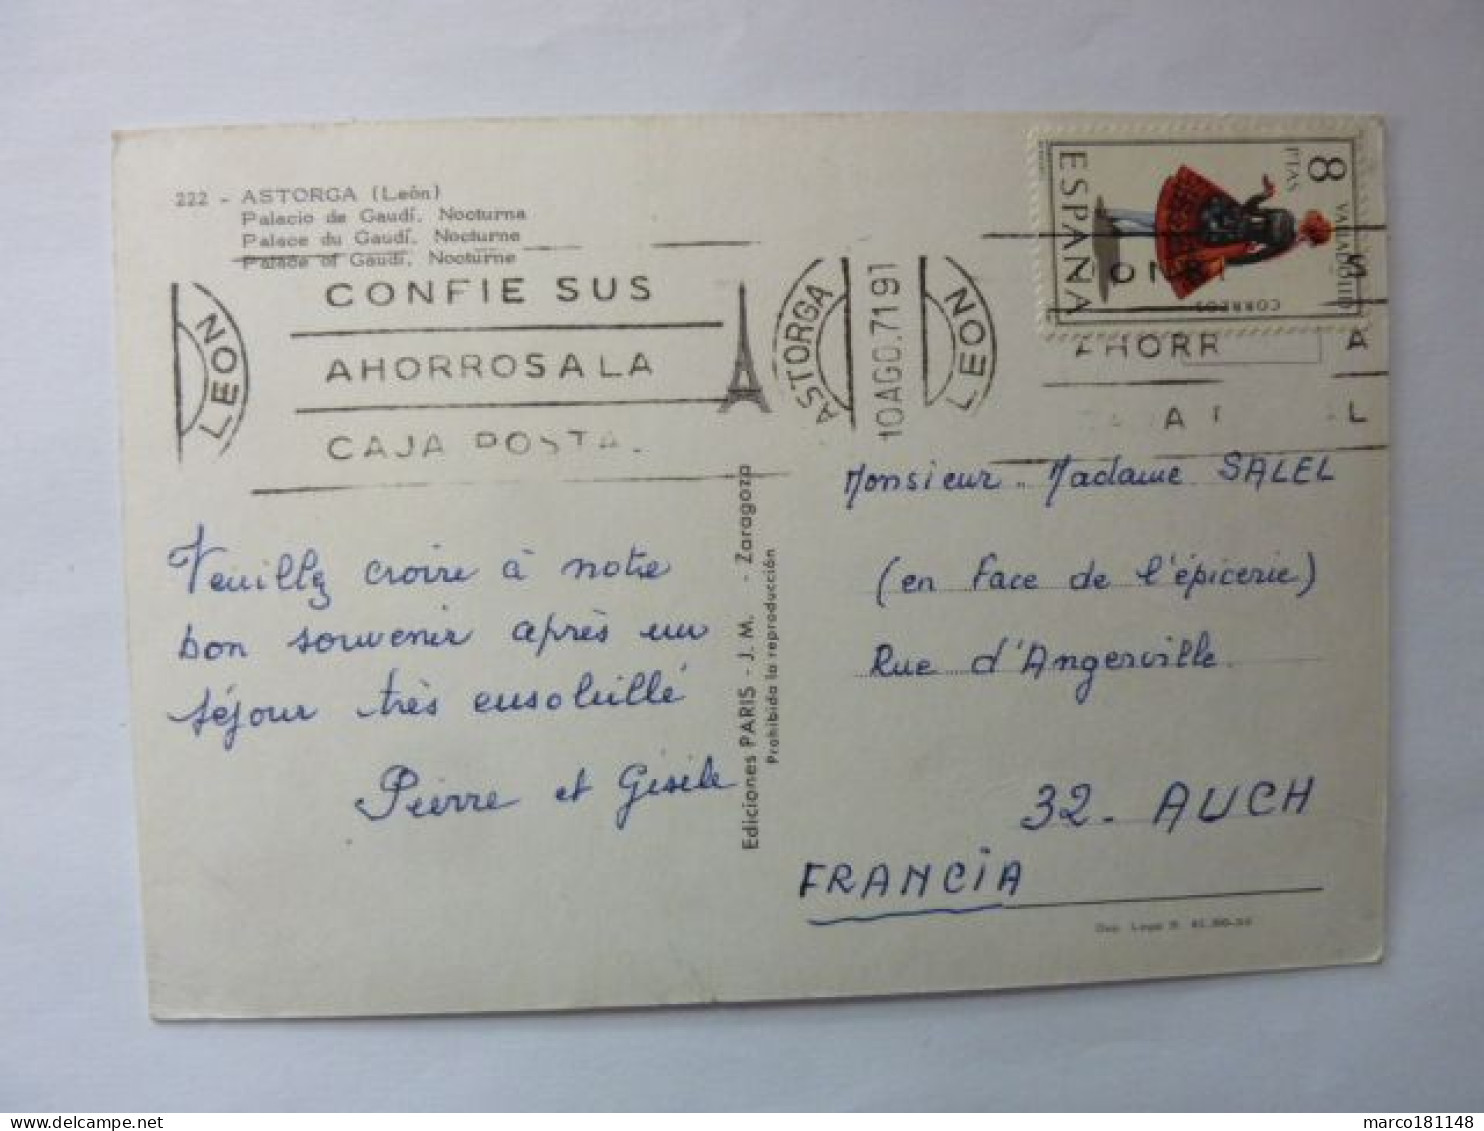 222 - ASTORGA (León)
Palacio de Gaudí. Nocturna
Palace du Gaudí. Nocturne
Palace of Gaudí. Nocturne
LEON
CONFIE SUS
AHORROS A LA
CAJA POSTAL
ASTORGA
10 AGO. 71 91
LEON
AHORR
ESPAÑA
8
PTAS
VALLADOLID
CORREOS
Veuillez croire à notre
bon souvenir après un
séjour très ensoleillé
Pierre et Gisèle
Ediciones PARIS - J. M. - Zaragoza
Prohibida la reproducción
Monsieur . Madame SALEL
(en face de l'épicerie)
Rue d'Angerville
32 - AUCH
FRANCiA
delcampe.net
marco181148